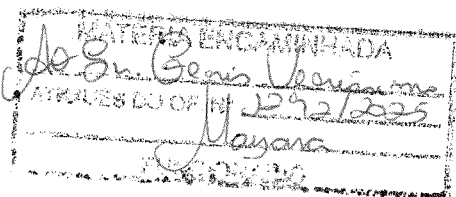 MATÉRIA ENCAMINHADA
Ao Sr. Genis
ATRAVÉS DO OF Nº 1292/2025
Mayara